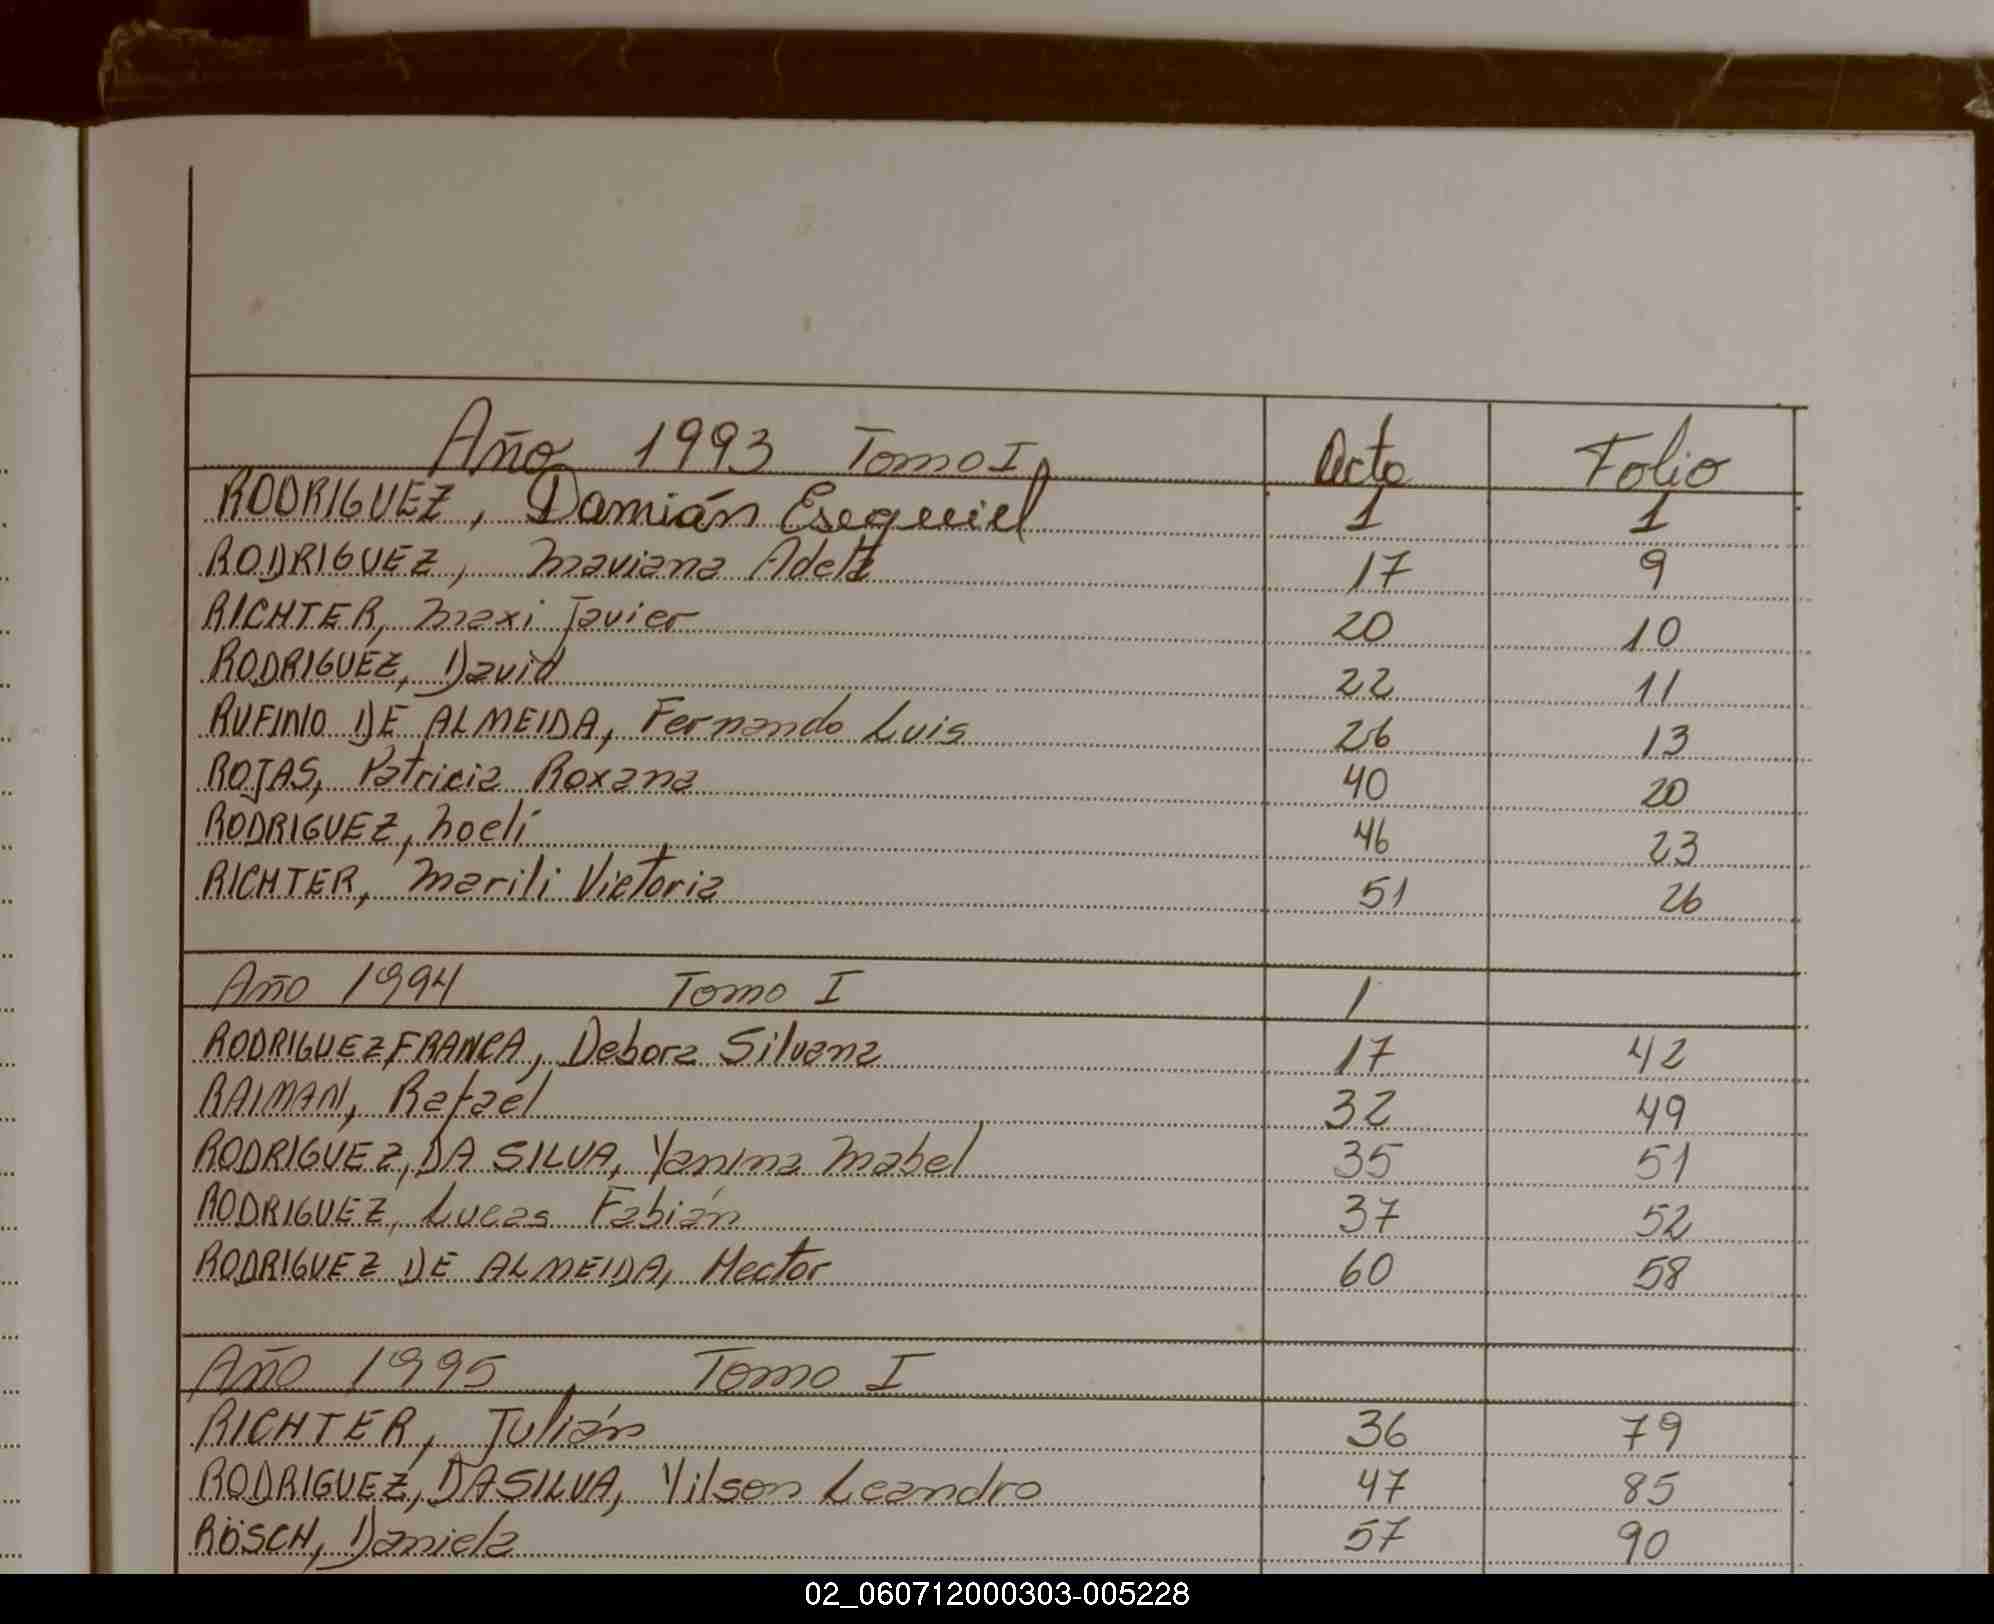 Año 1993 Tomo I Acta Folio
RODRIGUEZ, Damián Esequiel 1 1
RODRIGUEZ, Mariana Adela 17 9
RICHTER, Maxi Javier 20 10
RODRIGUEZ, David 22 11
RUFINO DE ALMEIDA, Fernando Luis 26 13
ROJAS, Patricia Roxana 40 20
RODRIGUEZ, Noelí 46 23
RICHTER, Marili Victoria 51 26
Año 1994 Tomo I 1
RODRIGUEZ, FRANCA, Debora Silvana 17 42
RAIMAN, Rafael 32 49
RODRIGUEZ, DA SILVA, Yanina Mabel 35 51
RODRIGUEZ, Lucas Fabián 37 52
RODRIGUEZ DE ALMEIDA, Hector 60 58
Año 1995 Tomo I
RICHTER, Julián 36 79
RODRIGUEZ, DA SILVA, Yilson Leandro 47 85
RÖSCH, Daniela 57 90
02_060712000303-005228